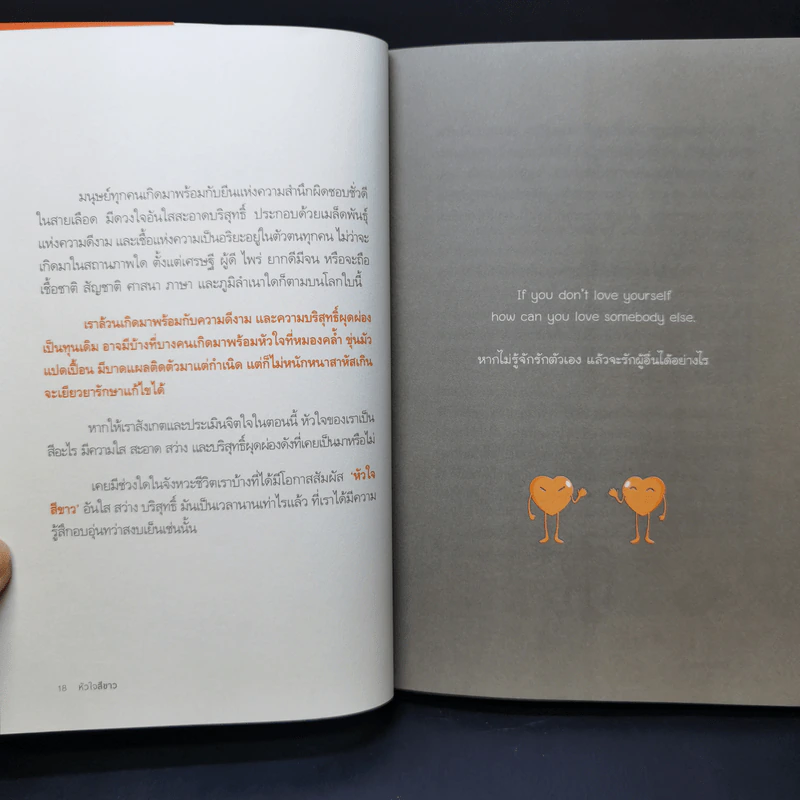 มนุษย์ทุกคนเกิดมาพร้อมกับยีนแห่งความสำนึกผิดชอบชั่วดี
ในสายเลือด มีดวงใจอันใสสะอาดบริสุทธิ์ ประกอบด้วยเมล็ดพันธุ์
แห่งความดีงาม และเชื้อแห่งความเป็นอริยะอยู่ในตัวตนทุกคน ไม่ว่าจะ
เกิดมาในสถานภาพใด ตั้งแต่เศรษฐี ผู้ดี ไพร่ ยากดีมีจน หรือจะถือ
เชื้อชาติ สัญชาติ ศาสนา ภาษา และภูมิลำเนาใดก็ตามบนโลกใบนี้
เราล้วนเกิดมาพร้อมกับความดีงาม และความบริสุทธิ์ผุดผ่อง
เป็นทุนเดิม อาจมีบ้างที่บางคนเกิดมาพร้อมหัวใจที่หมองคล้ำ ขุ่นมัว
แปดเปื้อน มีบาดแผลติดตัวมาแต่กำเนิด แต่ก็ไม่หนักหนาสาหัสเกิน
จะเยียวยารักษาแก้ไขได้
หากให้เราสังเกตและประเมินจิตใจในตอนนี้ หัวใจของเราเป็น
สีอะไร มีความใส สะอาด สว่าง และบริสุทธิ์ผุดผ่องดังที่เคยเป็นมาหรือไม่
เคยมีช่วงใดในจังหวะชีวิตเราบ้างที่ได้มีโอกาสสัมผัส ‘หัวใจ
สีขาว’ อันใส สว่าง บริสุทธิ์ มันเป็นเวลานานเท่าไรแล้ว ที่เราได้มีความ
รู้สึกอบอุ่นทว่าสงบเย็นเช่นนั้น
18 หัวใจสีขาว
If you don't love yourself
how can you love somebody else.
หากไม่รู้จักรักตัวเอง แล้วจะรักผู้อื่นได้อย่างไร